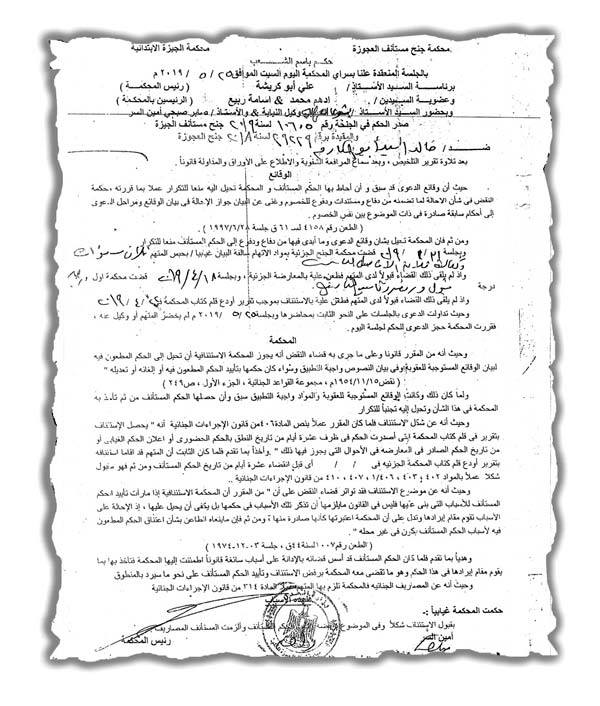 محكمة جنح مستأنف العجوزة
محكمة الجيزة الابتدائية
حكم باسم الشعب
بالجلسة المنعقدة علنا بسراى المحكمة اليوم السبت الموافق ٢٥/ ٥ /٢٠١٩ م
برئاسة السيد الأستاذ/ على أبو كريشة (رئيس المحكمة)
وعضوية السيدين/ ادهم محمد & اسامة ربيع (الرئيسين بالمحكمة)
وبحضور السيد الأستاذ/ وكيل النيابة & والأستاذ/ صابر صبحي أمين السر
صدر الحكم في الجنحة رقم ١٠٦٠٥ لسنة ٢٠١٩ جنح مستأنف الجيزة
والمقيدة برقم ٢٩٢٢٩ لسنة ٢٠١٨ جنح العجوزة
ضد / خالد السيد
بعد تلاوة تقرير التلخيص، وبعد سماع المرافعة الشفوية والاطلاع على الأوراق والمداولة قانوناً.
الوقائع
حيث أن وقائع الدعوى قد سبق و أن أحاط بها الحكم المستأنف و المحكمة تحيل اليه منعا للتكرار عملا بما قررته محكمة
النقض فى شأن الاحالة لما تضمنه من دفاع ومستندات ودفوع للخصوم وغنى عن البيان جواز الإحالة فى بيان الوقائع ومراحل الدعوى
إلى أحكام سابقة صادرة فى ذات الموضوع بين نفس الخصوم.
( الطعن رقم ٤١٥٨ لسنة ٦١ ق جلسة ١٩٩٧/٦/٢٨ )
ومن ثم فإن المحكمة تحيل بشأن وقائع الدعوى وما أبدى فيها من دفاع ودفوع إلى الحكم المستأنف منعا للتكرار
وبجلسة قضت محكمة الجنح الجزئية بمواد الاتهام سالفة البيان غيابيا / بحبس المتهم ثلاث سنوات
وكفالة
وإذ لم يلق ذلك القضاء قبولاً لدى المتهم فطعن عليه بالمعارضة الجزئية، وبجلسة قضت محكمة اول
درجة
وإذ لم يلق ذلك القضاء قبولاً لدى المتهم فطعن عليه بالاستئناف بموجب تقرير أودع قلم كتاب المحكمة فى
وحيث تداولت الدعوى بالجلسات على النحو الثابت بمحاضرها وبجلسة ٢٥/ ٥ /٢٠١٩ م لم يحضر المتهم أو وكيل عنه ،
فقررت المحكمة حجز الدعوى للحكم لجلسة اليوم.
المحكمة
وحيث أنه من المقرر قانونا وعلى ما جرى به قضاء النقض أنه يجوز للمحكمة الاستئنافية أن تحيل إلى الحكم المطعون فيه
لبيان الوقائع المستوجبة للعقوبة وفى بيان النصوص واجبة التطبيق وسواء كان حكمها بتأييد الحكم المطعون فيه أو إلغائه أو تعديله "
( نقض ١٩٥٤/١١/١٥م ، مجموعة القواعد الجنائية ، الجزء الأول ، ص٢٤٩ )
ولما كان ذلك وكانت الوقائع المستوجبة للعقوبة والمواد واجبة التطبيق سبق وأن حصلها الحكم المستأنف من ثم تأخذ به
المحكمة فى هذا الشأن وتحيل إليه تجنباً للتكرار
وحيث أنه عن شكل الاستئناف فلما كان المقرر عملاً بنص المادة٤٠٦ من قانون الإجراءات الجنائية أنه " يحصل الاستئناف
بتقرير فى قلم كتاب المحكمة التى أصدرت الحكم فى ظرف عشرة أيام من تاريخ النطق بالحكم الحضورى أو اعلان الحكم الغيابى أو
من تاريخ الحكم الصادر فى المعارضة فى الأحوال التى يجوز فيها ذلك ". وأخذاً بما تقدم فلما كان الثابت أن المتهم قد أقام استئنافه
بتقرير أودع قلم كتاب المحكمة الجزئية فى / / أى قبل انقضاء عشرة أيام من تاريخ الحكم المستأنف ومن ثم فهو مقبول
شكلا عملاً بالمواد ٤٠٢ ، ٤٠٣ ، ١/٤٠٦ ، ٤٠٧ ، ٤١٠ من قانون الإجراءات الجنائية ..
وحيث أنه عن موضوع الاستئناف فقد تواتر قضاء النقض على أن " من المقرر أن المحكمة الاستئنافية إذا مارأت تأييد الحكم
المستأنف للأسباب التى بنى عليها فليس فى القانون مايلزمها أن تذكر تلك الأسباب فى حكمها بل يكفى أن يحيل عليها ، إذ الإحالة على
الأسباب تقوم مقام إيرادها وتدل على أن المحكمة اعتبرتها كأنها صادرة منها ومن ثم فإن ماينعاه الطاعن بشأن اعتناق الحكم المطعون
فيه لأسباب الحكم المستأنف يكون فى غير محله "
( الطعن رقم ١٠٠٧ لسنة ٤٤ق ، جلسة ٠٣-١٢-١٩٧٤ )
وهدياً بما تقدم فلما كان الحكم المستأنف قد أسس قضائه بالإدانة على أسباب سائغة قانوناً اطمئنت إليها المحكمة فتأخذ بها بما
يقوم مقام إيرادها فى هذا الحكم وهو ما تقضى معه المحكمة برفض الاستئناف وتأييد الحكم المستأنف على نحو ما سيرد بالمنطوق
وحيث أنه عن المصاريف الجنائيه فالمحكمة تلزم بها المتهم المادة ٣١٤ من قانون الإجراءات الجنائية
فلهذه الأسباب
حكمت المحكمة غيابياً :-
بقبول الاستئناف شكلاً وفى الموضوع المستأنف وألزمت المستأنف المصاريف
أمين السر
رئيس المحكمة